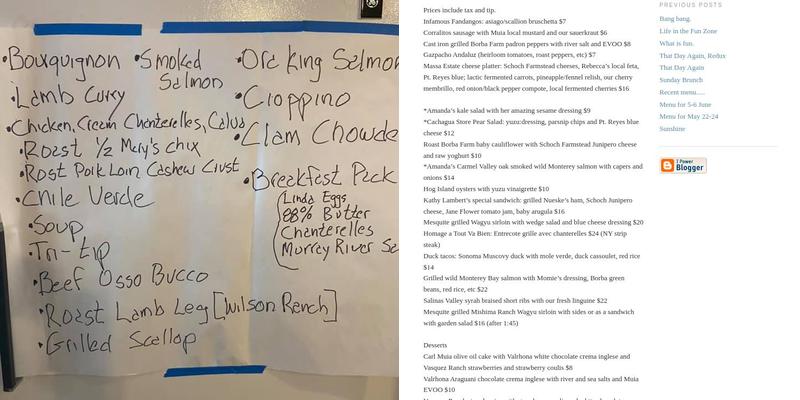 •Bouquignon
•Smoked Salmon
•Ora King Salmon
•Lamb Curry
•Cioppino
•Chicken, Cream Chanterelles, Calva
•Clam Chowde
•Roast 1/2 Mary's chix
•Rost Pork Loin Cashew Crust
•Breakfast Pack
•Chile Verde
Linda Eggs
88% Butter
Chanterelles
Murray River Sa
•Soup
•Tri-tip
•Beef Osso Bucco
•Roast Lamb Leg [Wilson Ranch]
•Grilled Scallop
Prices include tax and tip.
Infamous Fandangos: asiago/scallion bruschetta $7
Corralitos sausage with Muia local mustard and our sauerkraut $6
Cast iron grilled Borba Farm padron peppers with river salt and EVOO $8
Gazpacho Andaluz (heirloom tomatoes, roast peppers, etc) $7
Massa Estate cheese platter: Schoch Farmstead cheeses, Rebecca's local feta,
Pt. Reyes blue; lactic fermented carrots, pineapple/fennel relish, our cherry
membrillo, red onion/black pepper compote, local fermented cherries $16
*Amanda's kale salad with her amazing sesame dressing $9
*Cachagua Store Pear Salad: yuzu:dressing, parsnip chips and Pt. Reyes blue
cheese $12
Roast Borba Farm baby cauliflower with Schoch Farmstead Junipero cheese
and raw yoghurt $10
*Amanda's Carmel Valley oak smoked wild Monterey salmon with capers and
onions $14
Hog Island oysters with yuzu vinaigrette $10
Kathy Lambert's special sandwich: grilled Nueske's ham, Schoch Junipero
cheese, Jane Flower tomato jam, baby arugula $16
Mesquite grilled Wagyu sirloin with wedge salad and blue cheese dressing $20
Homage a Tout Va Bien: Entrecote grille avec chanterelles $24 (NY strip
steak)
Duck tacos: Sonoma Muscovy duck with mole verde, duck cassoulet, red rice
$14
Grilled wild Monterey Bay salmon with Momie's dressing, Borba green
beans, red rice, etc $22
Salinas Valley syrah braised short ribs with our fresh linguine $22
Mesquite grilled Mishima Ranch Wagyu sirloin with sides or as a sandwich
with garden salad $16 (after 1:45)
Desserts
Carl Muia olive oil cake with Valrhona white chocolate crema inglese and
Vasquez Ranch strawberries and strawberry coulis $8
Valrhona Araguani chocolate crema inglese with river and sea salts and Muia
EVOO $10
PREVIOUS POSTS
Bang bang.
Life in the Fun Zone
What is fun.
That Day Again, Redux
That Day Again
Sunday Brunch
Recent menu.....
Menu for 5-6 June
Menu for May 22-24
Sunshine
I Power
Blogger